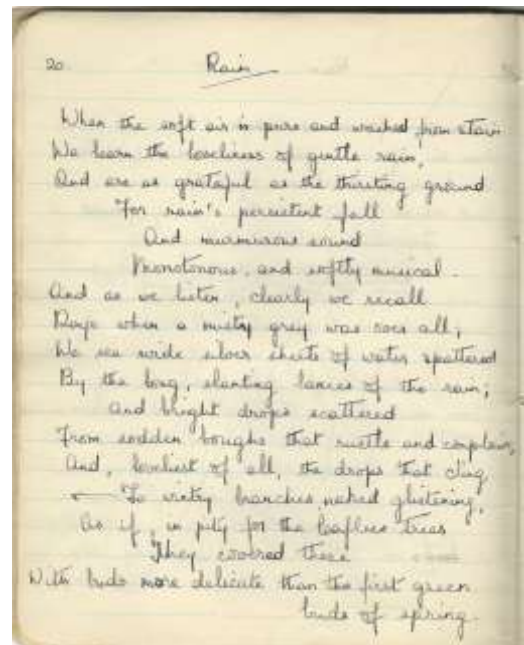 20
Rain
When the soft air is pure and washed from stain
We learn the loveliness of gentle rain,
And are as grateful as the thirsting ground
For rain's persistent fall
And murmurous sound
Monotonous, and softly musical.
And as we listen, clearly we recall
Days when a misty grey was over all,
We see wide silver sheets of water spattered
By the long, slanting lances of the rain;
And bright drops scattered
From sodden boughs that rustle and complain,
And, loveliest of all, the drops that cling
To wintry branches, naked glistening,
As if, in pity for the leafless trees
They covered these
With buds more delicate than the first green
buds of spring.